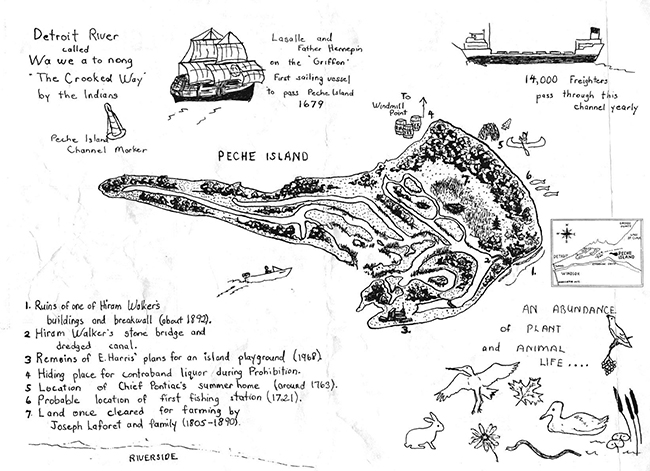 Detroit River
called
Wa we a to nong
"The Crooked Way"
by the Indians
Peche Island
Channel Marker
Lasalle and
Father Hennepin
on the "Griffon"
First sailing vessel
to pass Peche Island
1679
14,000 Freighters
pass through this
channel yearly
To
Windmill
Point
PECHE ISLAND
4
5
6
7
2
1.
3.
DETROIT
PECHE
ISLAND
WINDSOR
1. Ruins of one of Hiram Walker's
buildings and breakwall (about 1892).
2 Hiram Walker's stone bridge and
dredged canal.
3 Remains of E. Harris' plans for an island playground (1968).
4 Hiding place for contraband liquor during Prohibition.
5 Location of Chief Pontiac's summer home (around 1763).
6 Probable location of first fishing station (1721).
7 Land once cleared for farming by
Joseph Laforet and family (1805-1890).
AN ABUNDANCE
of PLANT
and ANIMAL
LIFE ....
RIVERSIDE